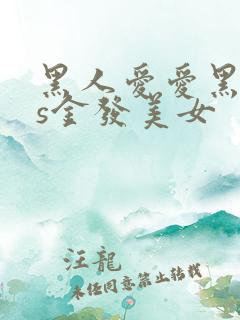 黑人愛愛黑
s金發美女
汪龍
未经同意禁止转载